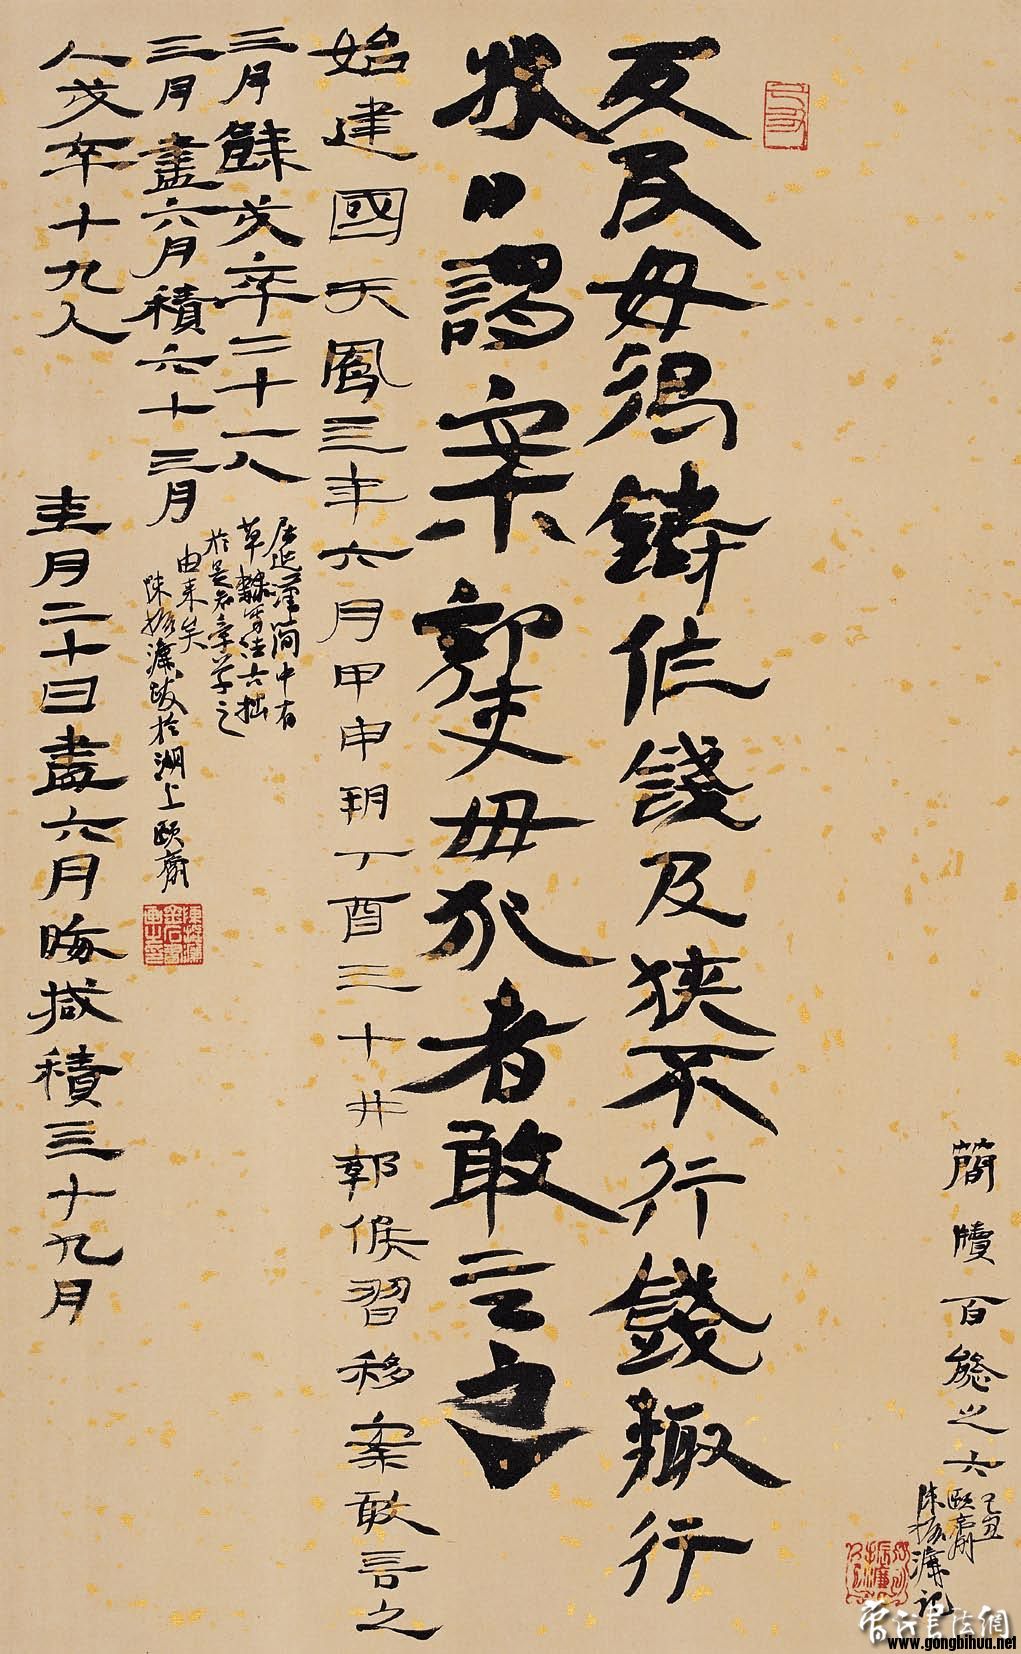 及民毋得鑄作錢及挾不行錢輒行
狀曰謁案郭吏毋犯者敢言之
始建國天鳳三年六月甲申朔丁酉三十井郭候習移案敢言之
三月餘茭卒二十八
三月盡六月積六十三月
人茭卒十九人
二十日盡六月晦積三十九月
居延漢簡中有
草隸書法六拙
於是知章草之
由来矣
陳振濂跋於湖上頤齋
簡牘百態之六
己丑
頤齋
陳振濂記
書法網
www.gongbihua.net